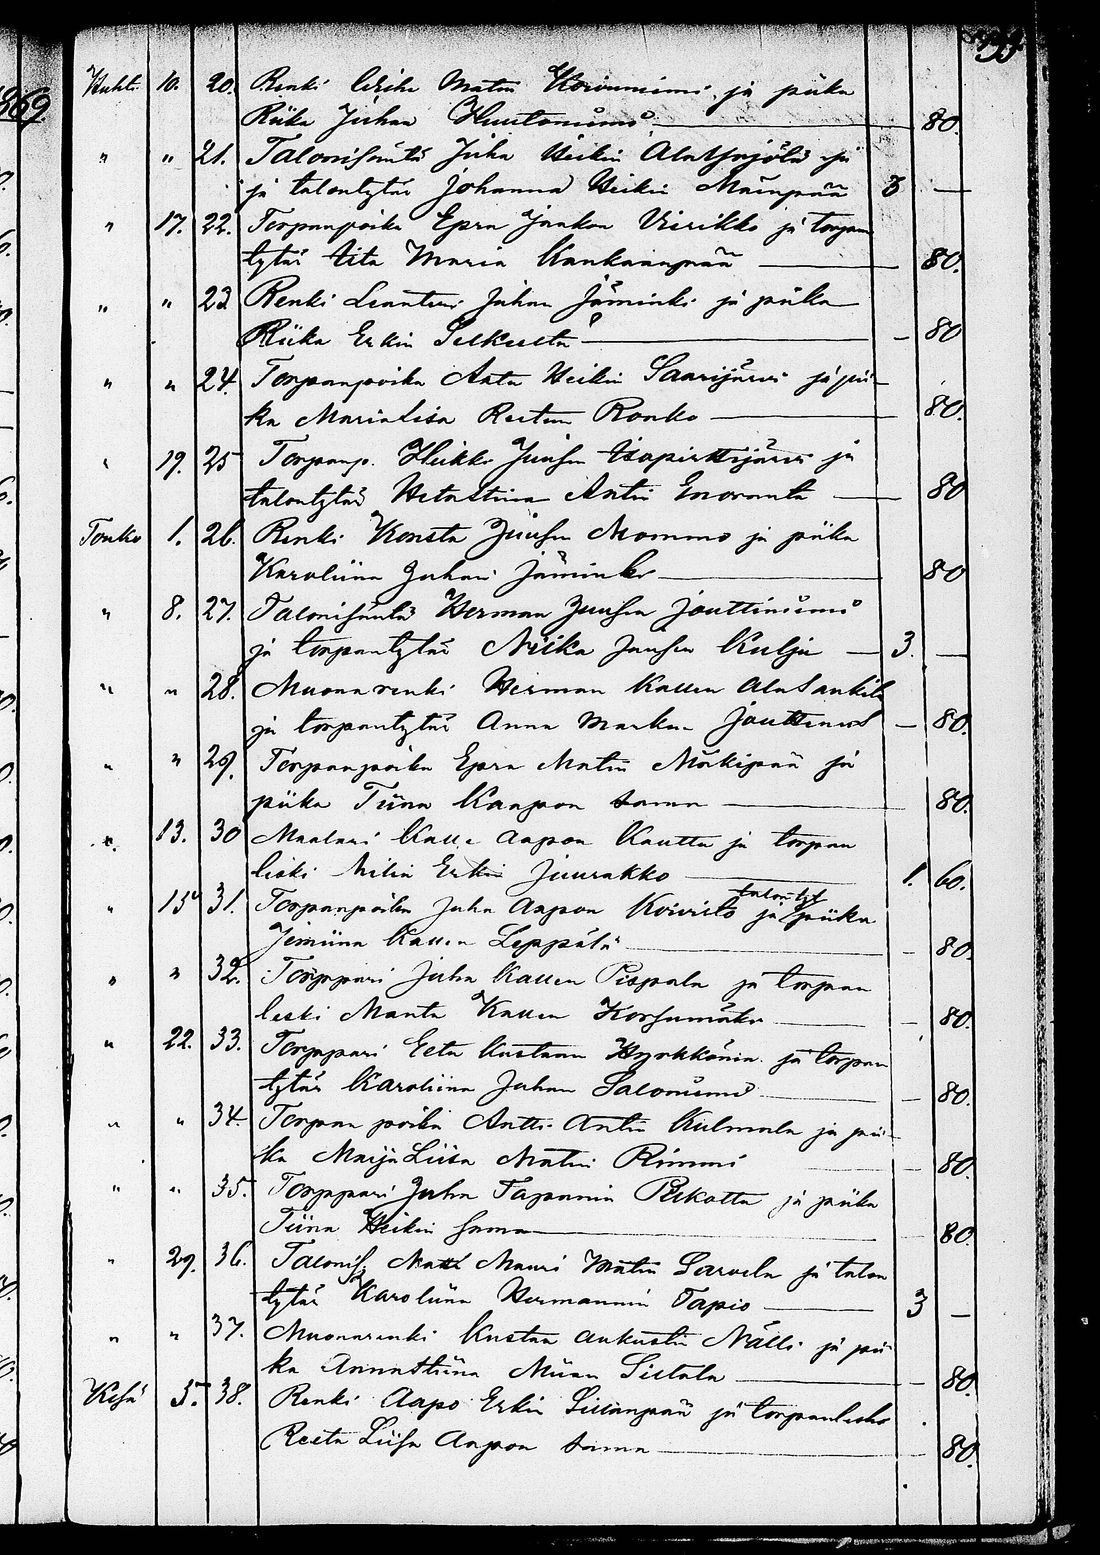 1869
Huhti 10. 20. Renki Matin Koivuniemi ja piika
Riika Juhan Huutoniemi 80.
" " 21. Talonisäntä Juha Heikin ja
ja talontytär Johanna Heikin Mäenpää 3 —
" 17. 22. Torpanpoika Epra Jaakon Viirikko ja torpan
tytär Maria Kankaanpää 80.
" " 23 Renki Leanteri Juhan Jäminki ja piika
Riika Erkin — 80
" " 24. Torpanpoika Antti Heikin Saarijärvi ja pii-
ka Marialisa Ronko 80.
" 19. 25 Torpanp. Heikki Juusen ja
talontytär Antin Enoranta 80
Touko 1. 26. Renki Konsta Juusen Mommo ja piika
Karoliina Juhani Jäminki 80
" 8. 27. Talonisäntä Herman Juusen Jouttiniemi
ja torpantytär Miika Juusen Kulju — 3. —
" " 28. Muonarenki Herman Kallen
ja torpantytär Anna — 80.
" " 29. Torpanpoika Epra Matin Mäkipää ja
piika Tiina Kaapon sama 80.
" 13. 30 Maalari Kalle Aapon Kautta ja torpan
leski Milia Erkin Juurakko 1. 60.
" 15 31. Torpanpoika Juha Aapon Koivisto ja talontyt piika
Jemiina Kallen Leppälä — 80.
" " 32. Torppari Juha Kallen Pispala ja torpan
leski Manta Kallen Korsumäki — 80.
" 22. 33. Torppari Eetu Kustaan ja torpan
tytär Karoliina Juhan Saloniemi — 80.
" " 34. Torpan poika Antti Antin Kulmala ja pii-
ka Maija Liisa Matin Rimmi — 80.
" " 35. Torppari Juha Tapanin ja piika
Tiina Heikin sama 80.
" 29. 36. Talonis. Mauri Matin Sarvela ja talon
tytär Karoliina Hermannin Tapio 3 —
" " 37. Muonarenki Kustaa Aukustin Nälli ja pii-
ka Annastiina 80.
Kesä 5. 38. Renki Aapo Erkin Sillanpää ja torpanleski
Reeta Liisa Aapon sama 80.